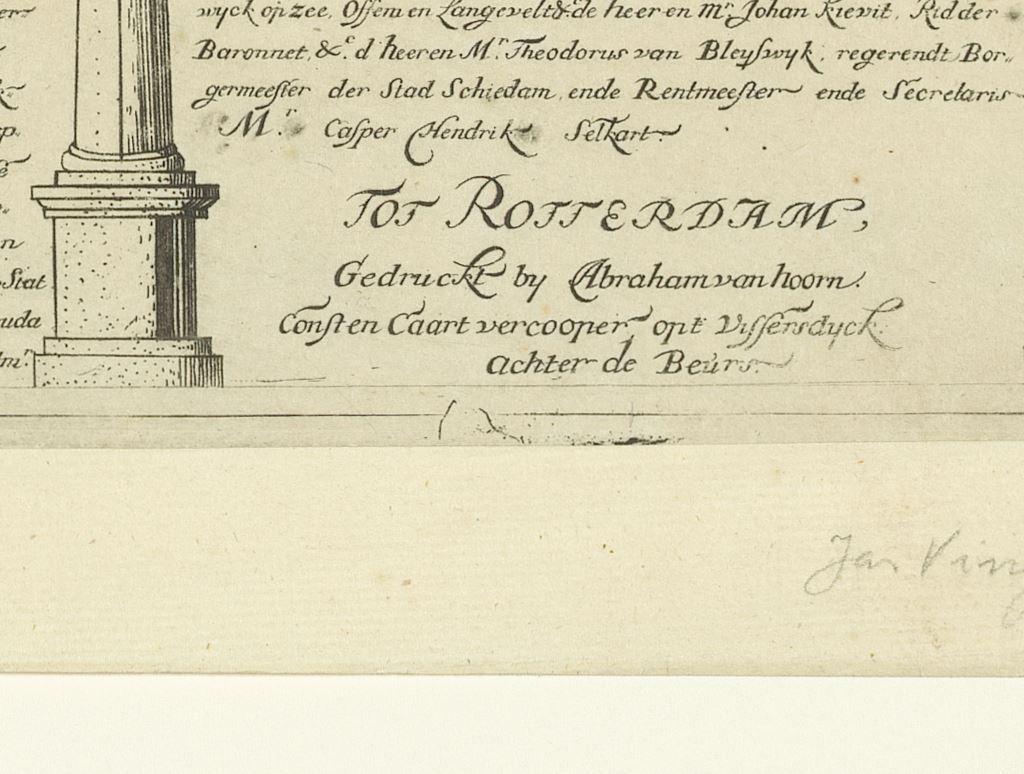 wyck op zee, Offem en Langevelt &. de heer en Mr. Johan Kievit, Ridder
Baronnet, &c. d'heeren Mr. Theodorus van Bleyswyk, regerendt Bor„
germeester der Stad Schiedam, ende Rentmeester ende Secretaris
Mr. Casper Hendrik Selkart
TOT ROTTERDAM,
Gedruckt by Abraham van hoorn.
Const en Caart vercooper, opt Vissersdyck
achter de Beurs.
Stat
uda
Jan